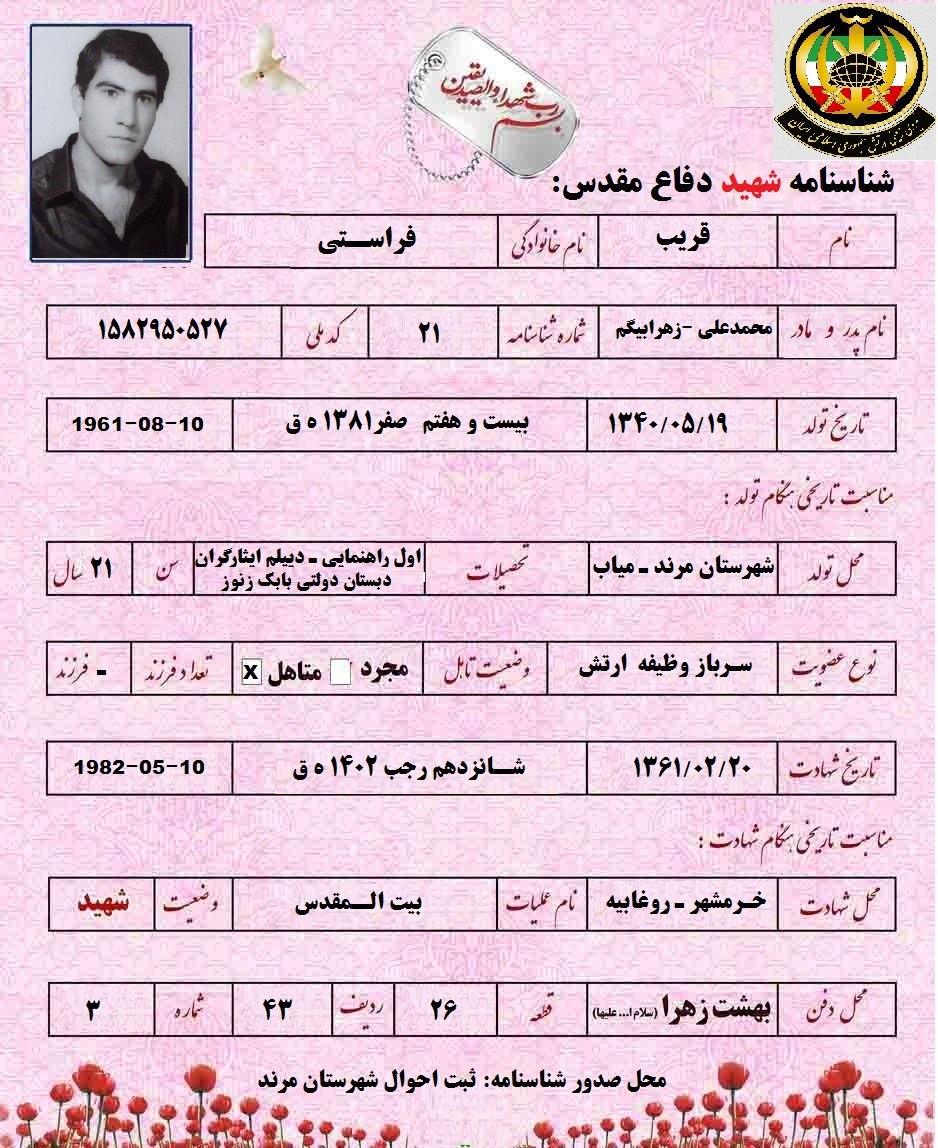 بسم رب الشهدا والصدیقین
نیروی زمینی ارتش جمهوری اسلامی ایران
شناسنامه شهید دفاع مقدس:
نام قریب نام خانوادگی فراستی
نام پدر و مادر محمدعلی -زهرابیگم شماره شناسنامه ۲۱ کد ملی ۱۵۸۲۹۵۰۵۲۷
تاریخ تولد ۱۳۴۰/۰۵/۱۹ بیست و هفتم صفر۱۳۸۱ ه ق 1961-08-10
مناسبت تاریخی هنگام تولد :
محل تولد شهرستان مرند ـ میاب تحصیلات اول راهنمایی ـ دیپلم ایثارگران
دبستان دولتی بابک زنوز سن ۲۱ سال
نوع عضویت سرباز وظیفه ارتش وضعیت تاهل مجرد متاهل x تعداد فرزند - فرزند
تاریخ شهادت ۱۳۶۱/۰۲/۲۰ شانزدهم رجب ۱۴۰۲ ه ق 1982-05-10
مناسبت تاریخی هنگام شهادت :
محل شهادت خرمشهر ـ روغابیه نام عملیات بیت المقدس وضعیت شهید
محل دفن بهشت زهرا (سلام ا... علیها) قطعه ۲۶ ردیف ۴۳ شماره ۳
محل صدور شناسنامه: ثبت احوال شهرستان مرند